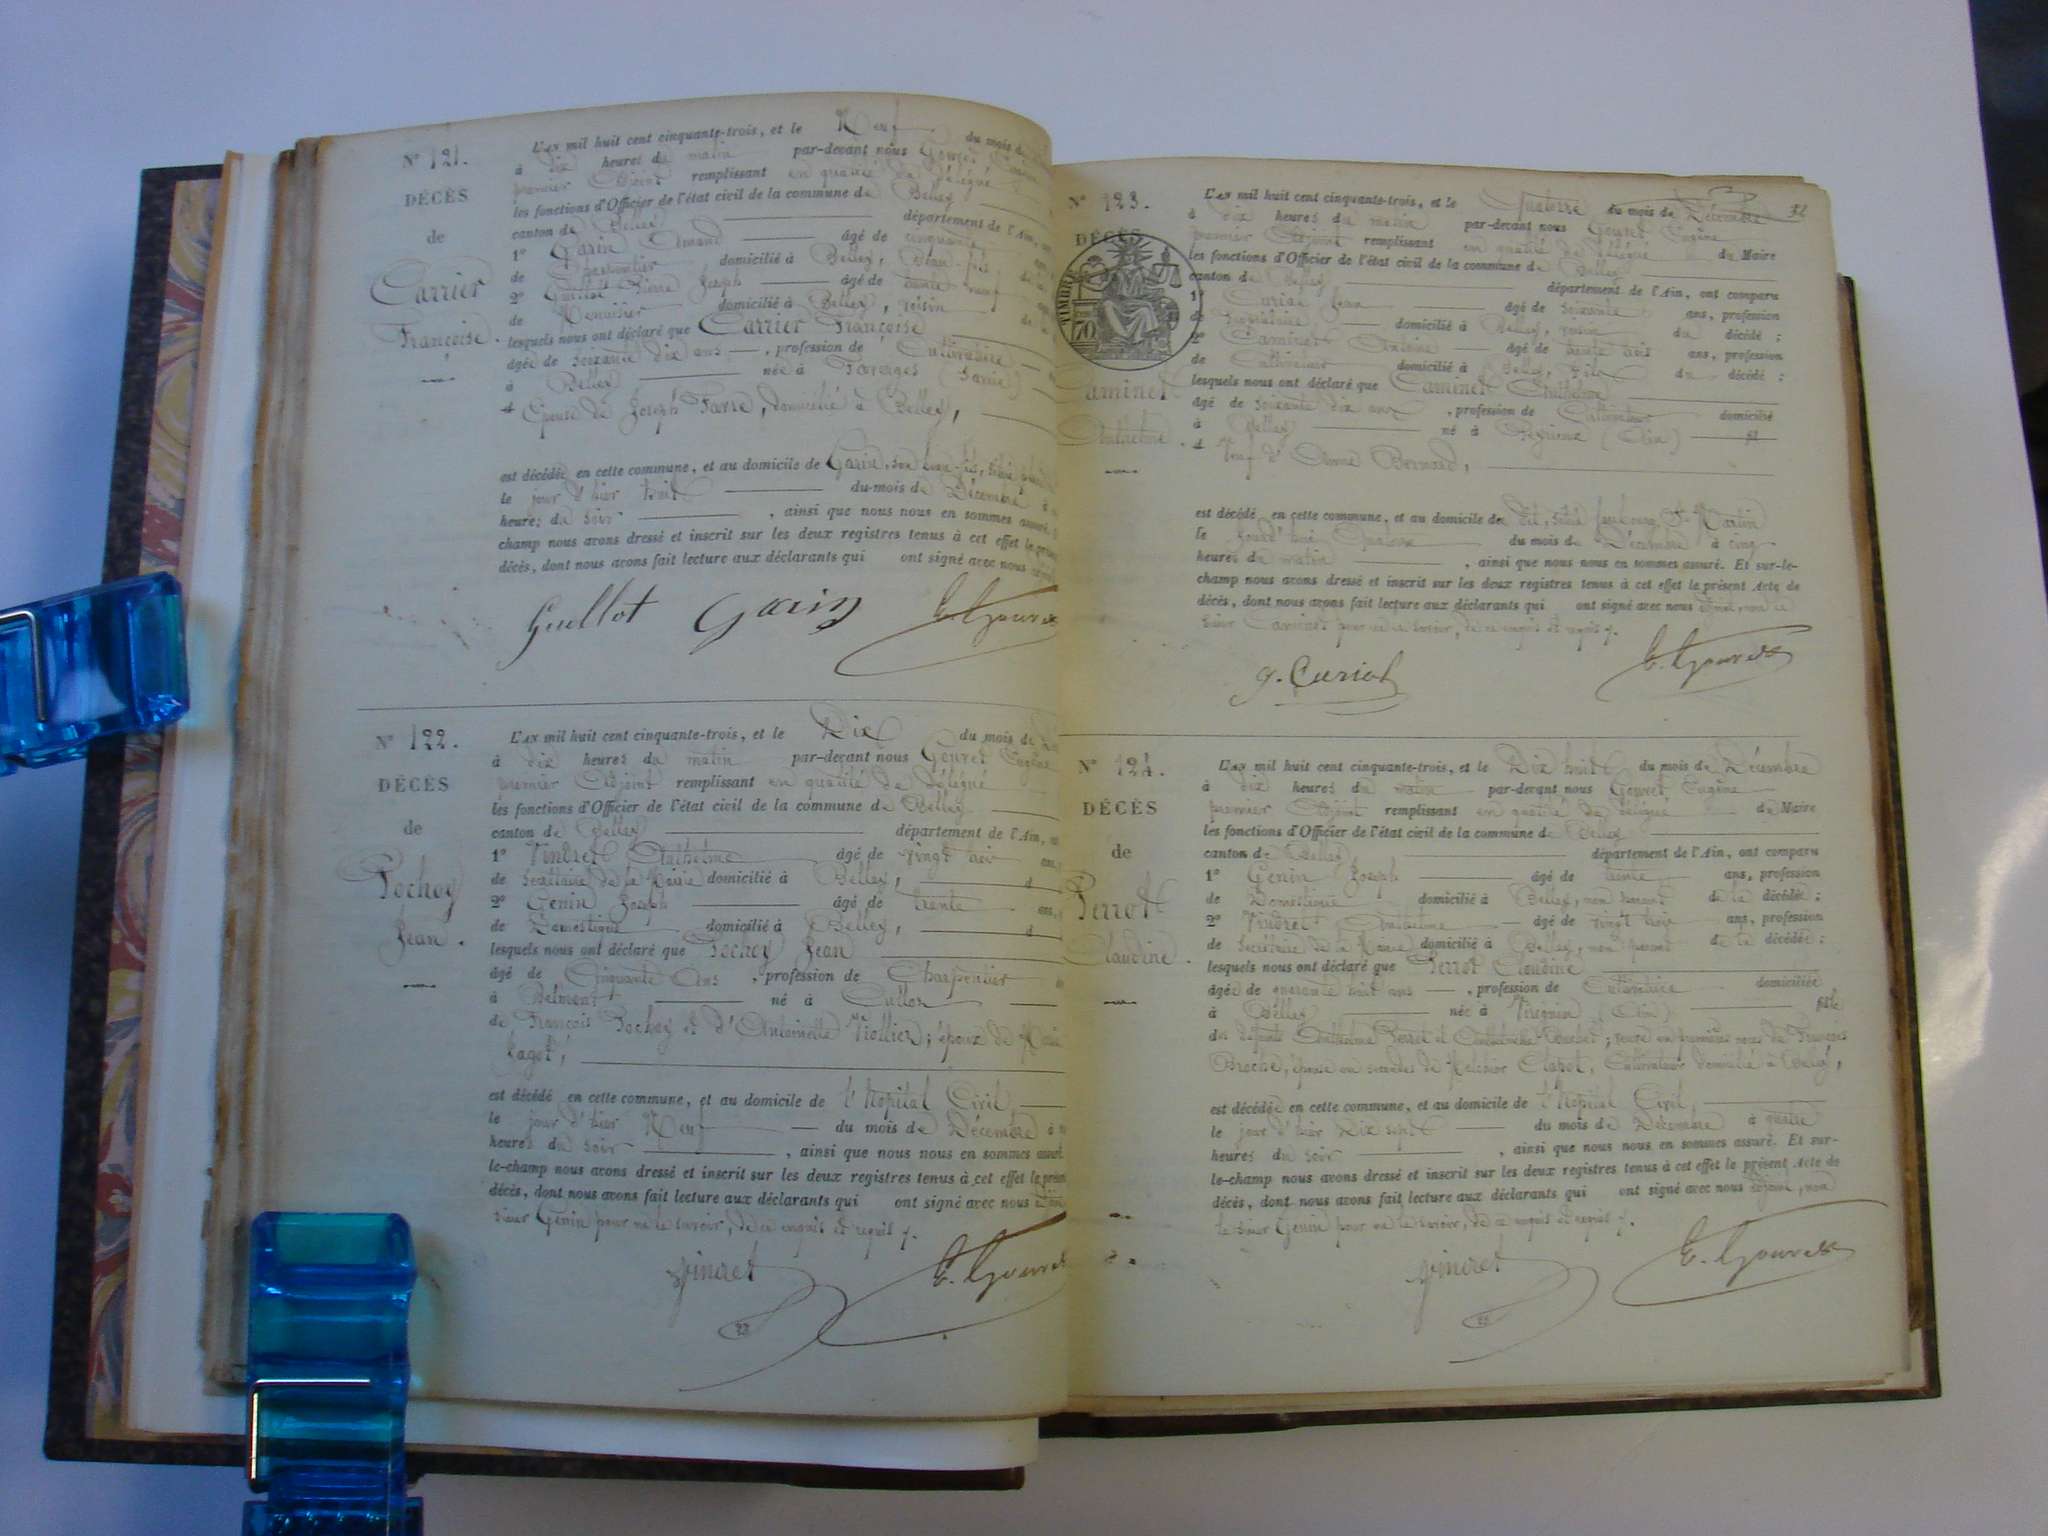 N° 121.
DÉCÈS
de
Carrier
Françoise.
L'AN mil huit cent cinquante-trois, et le Neuf du mois de
à dix heures du matin par-devant nous Gouret
premier Adjoint remplissant en qualité de Délégué
les fonctions d'Officier de l'état civil de la commune de Belley
canton de Belley département de l'Ain,
1° Garin Amand âgé de cinquante
de Charpentier domicilié à Belley, beau-fils
2° Guillot Pierre Joseph âgé de trente neuf
de Menuisier domicilié à Belley, voisin
lesquels nous ont déclaré que Carrier Françoise
âgée de soixante dix ans, profession de Cultivatrice
à Belley née à Faverges
Epouse de Joseph Favre, domicilié à Belley,
est décédée en cette commune, et au domicile de Garin, son beau-fils,
le jour d'hier huit du mois de Décembre à
heures du soir, ainsi que nous nous en sommes assuré.
champ nous avons dressé et inscrit sur les deux registres tenus à cet effet le
décès, dont nous avons fait lecture aux déclarants qui ont signé avec nous
Guillot Garin E. Gouret
N° 122.
DÉCÈS
de
Pochoy
Jean.
L'AN mil huit cent cinquante-trois, et le Dix du mois de
à dix heures du matin par-devant nous Gouret Eugène
premier Adjoint remplissant en qualité de Délégué
les fonctions d'Officier de l'état civil de la commune de Belley
canton de Belley département de l'Ain,
1° Vindret Anthelme âgé de vingt trois ans,
de Secrétaire de la Mairie domicilié à Belley,
2° Genin Joseph âgé de trente ans,
de Domestique domicilié à Belley,
lesquels nous ont déclaré que Pochoy Jean
âgé de Cinquante Ans, profession de Charpentier
à Belmont né à Culloz
de François Pochoy et d'Antoinette Viollier; époux de
Jagot,
est décédé en cette commune, et au domicile de l'Hôpital Civil
le jour d'hier Neuf du mois de Décembre à
heures du soir, ainsi que nous nous en sommes assuré.
le-champ nous avons dressé et inscrit sur les deux registres tenus à cet effet le
décès, dont nous avons fait lecture aux déclarants qui ont signé avec nous
sieur Genin pour ne le savoir, de ce enquis et requis
Vindret E. Gouret
N° 123.
DÉCÈS
TIMBRE
70
Caminet
Anthelme.
32
L'AN mil huit cent cinquante-trois, et le Quatorze du mois de Décembre
à dix heures du matin par-devant nous Gouret Eugène
premier Adjoint remplissant en qualité de Délégué du Maire
les fonctions d'Officier de l'état civil de la commune de Belley
canton de Belley département de l'Ain, ont comparu
1° Curiat Jean âgé de soixante ans, profession
de propriétaire domicilié à Belley, voisin du décédé;
2° Caminet Antoine âgé de trente trois ans, profession
de Cultivateur domicilié à Belley, fils du décédé;
lesquels nous ont déclaré que Caminet Anthelme
âgé de soixante dix ans, profession de Cultivateur domicilié
à Belley né à Peyrieux (Ain)
Veuf d'Anne Bernard,
est décédé en cette commune, et au domicile de dit, situé faubourg St. Martin
le jourd'hui Quatorze du mois de Décembre à cinq
heures du matin, ainsi que nous nous en sommes assuré. Et sur-le-
champ nous avons dressé et inscrit sur les deux registres tenus à cet effet le présent Acte de
décès, dont nous avons fait lecture aux déclarants qui ont signé avec nous
sieur Caminet pour ne le savoir, de ce enquis et requis
E. Gouret
N° 124.
DÉCÈS
de
Perrot
Claudine.
L'AN mil huit cent cinquante-trois, et le Dix huit du mois de Décembre
à dix heures du matin par-devant nous Gouret Eugène
premier Adjoint remplissant en qualité de Délégué du Maire
les fonctions d'Officier de l'état civil de la commune de Belley
canton de Belley département de l'Ain, ont comparu
1° Genin Joseph âgé de trente ans, profession
de Domestique domicilié à Belley, non parent de la décédée;
2° Vindret Anthelme âgé de vingt trois ans, profession
de Secrétaire de la Mairie domicilié à Belley, non parent de la décédée;
lesquels nous ont déclaré que Perrot Claudine
âgée de quarante huit ans, profession de Cultivatrice domiciliée
à Belley née à Virignin (Ain) fille
des défunts Anthelme Perrot et Anthelmette; veuve en premières noces de François
Broche, épouse en secondes de Melchior Clapot, Cultivateur domicilié à Belley,
est décédée en cette commune, et au domicile de l'Hôpital Civil,
le jour d'hier Dix sept du mois de Décembre à quatre
heures du soir, ainsi que nous nous en sommes assuré. Et sur-
le-champ nous avons dressé et inscrit sur les deux registres tenus à cet effet le présent Acte de
décès, dont nous avons fait lecture aux déclarants qui ont signé avec nous
le sieur Genin pour ne le savoir, de ce enquis et requis
Vindret E. Gouret